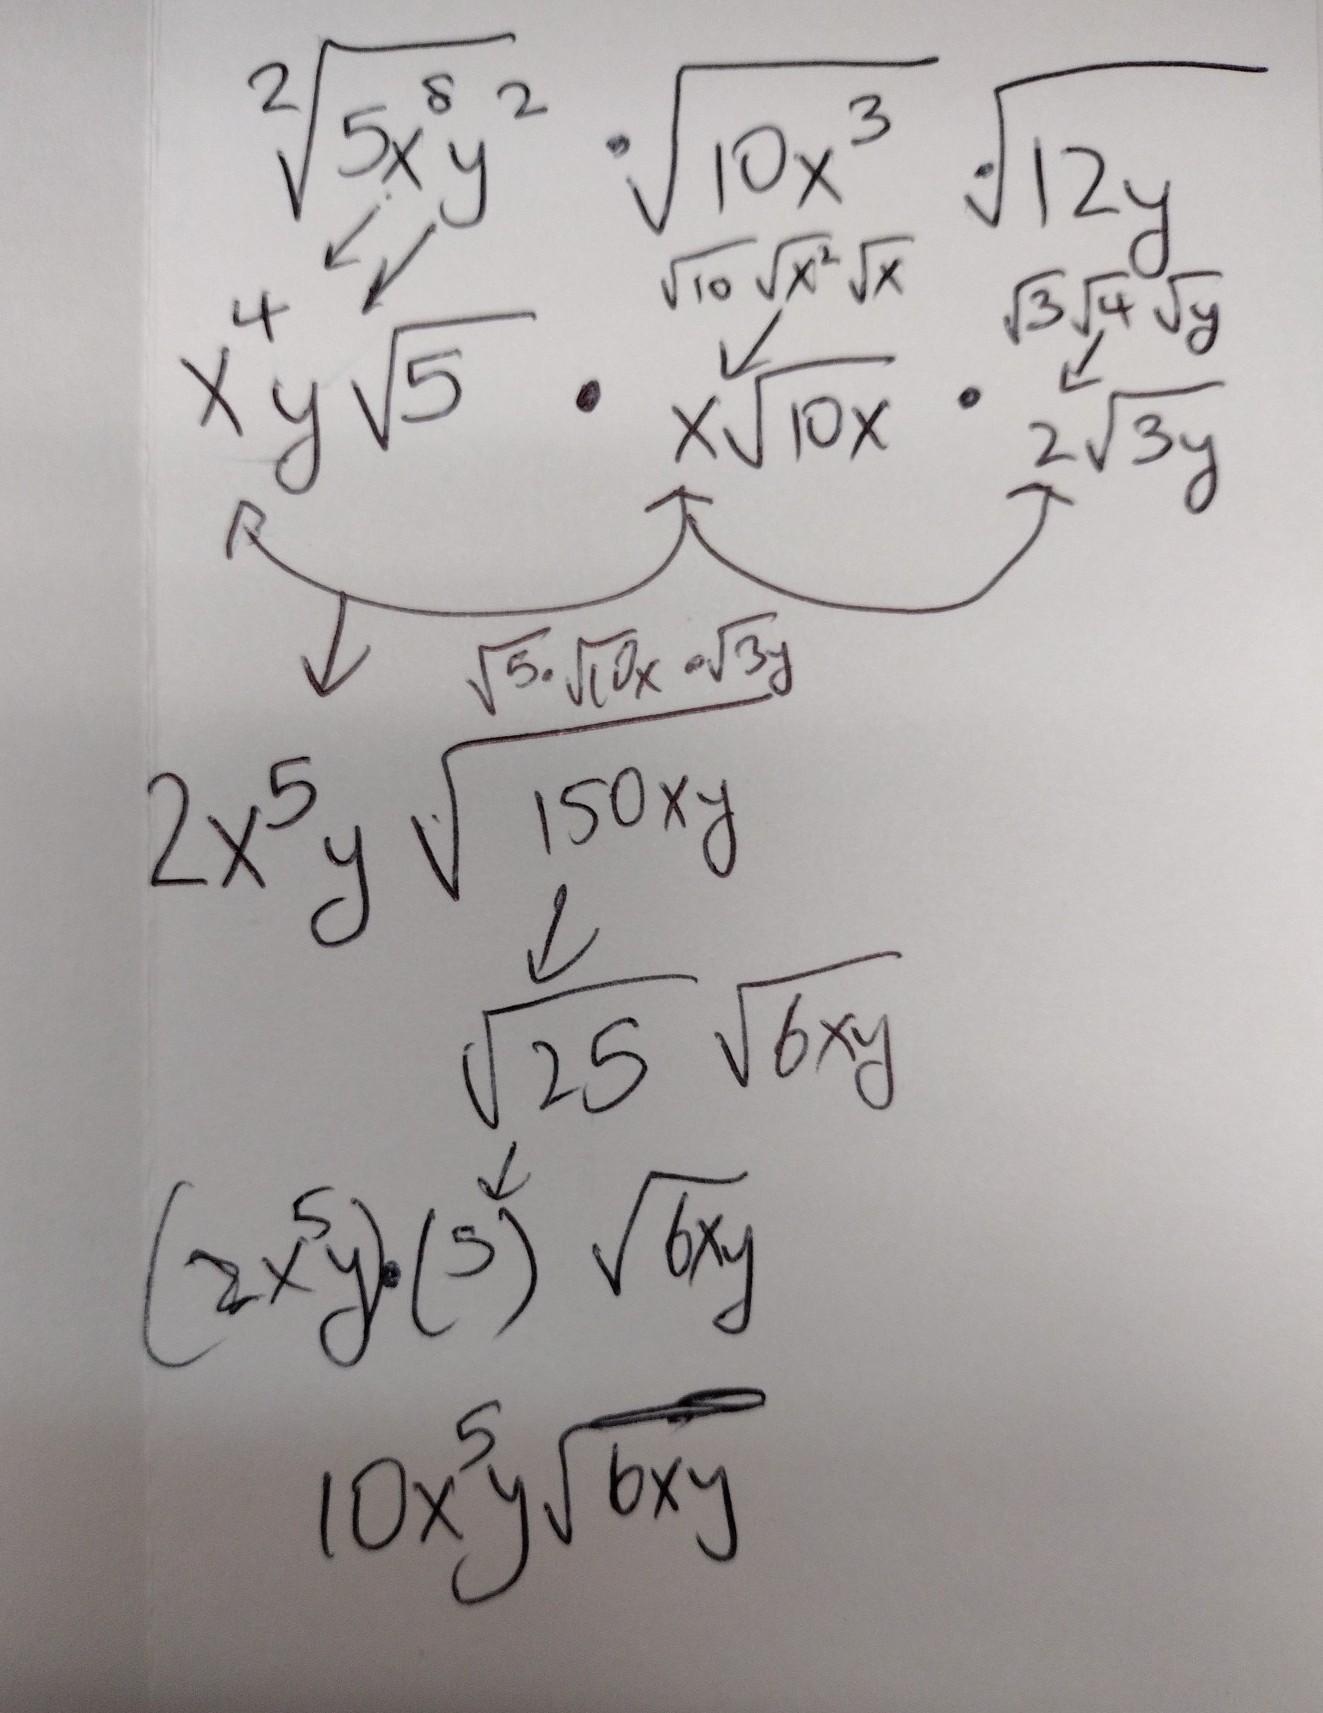 ²√5x⁸y² · √10x³ · √12y
√10 √x² √x √3 √4 √y
x⁴y√5 · x√10x · 2√3y
√5 · √10x · √3y
2x⁵y √150xy
√25 √6xy
(2x⁵y)·(5) √6xy
10x⁵y√6xy